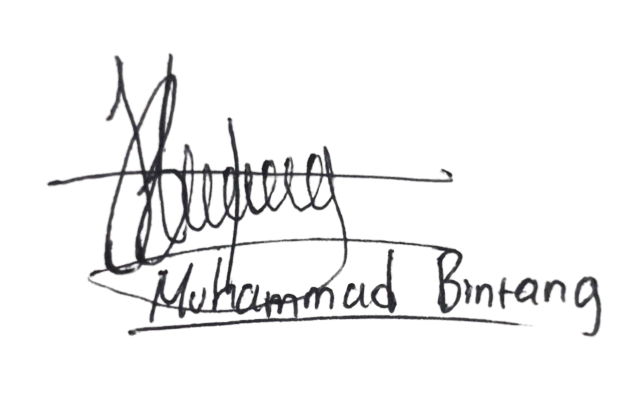 Muhammad Bintang